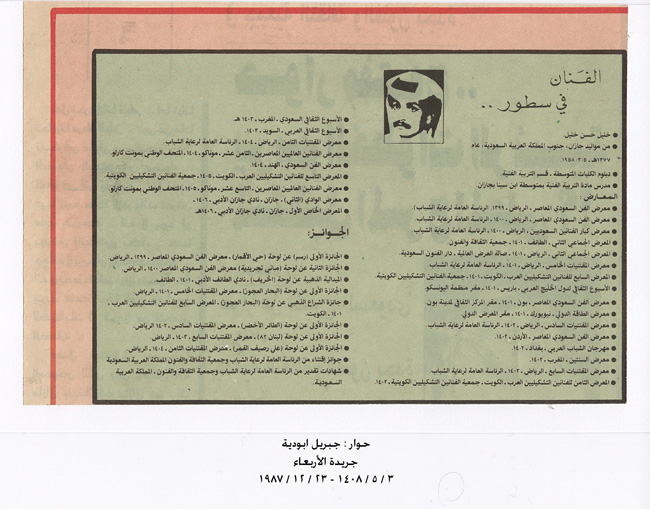 الفنان
في سطور ..
● خليل حسن خليل
● من مواليد جازان، جنوب المملكة العربية السعودية، عام
١٣٧٧هـ، ١٩٥٨/٢/٥.
● دبلوم الكليات المتوسطة ـ قسم التربية الفنية.
● مدرس مادة التربية الفنية بمتوسطة ابن سينا بجازان
المعارض:
● معرض الفن السعودي المعاصر ـ الرياض، ١٣٩٩، الرئاسة العامة لرعاية الشباب.
● معرض الفن السعودي المعاصر ـ الرياض ـ ١٤٠٠ ـ الرئاسة العامة لرعاية الشباب.
● معرض كبار الفنانين السعوديين ـ الرياض ـ ١٤٠٠ ـ الرئاسة العامة لرعاية الشباب.
● المعرض الجماعي الثاني ـ الطائف ـ ١٤٠١ ـ جمعية الثقافة والفنون
● المعرض الجماعي الثاني ـ الرياض ـ ١٤٠١ ـ صالة العرض العالمية ـ دار الفنون السعودية.
● معرض المقتنيات الخامس ـ الرياض ـ ١٤٠١ ـ الرئاسة العامة لرعاية الشباب
● المعرض السابع للفنانين التشكيليين العرب ـ الكويت ـ ١٤٠١ ـ جمعية الفنانين التشكيليين الكويتية
● الأسبوع الثقافي لدول الخليج العربي ـ باريس ـ ١٤٠١ ـ مقر منظمة اليونسكو
● معرض الفن السعودي المعاصر ـ بون ـ ١٤٠١ ـ مقر المركز الثقافي لمدينة بون.
● معرض الطاقة الدولي ـ نيويورك ـ ١٤٠١ ـ مقر المعرض الدولي
● معرض المقتنيات السادس ـ الرياض ـ ١٤٠٢ ـ الرئاسة العامة لرعاية الشباب
● معرض الفن السعودي المعاصر ـ الأردن ـ ١٤٠٢
● مهرجان الشباب العربي ـ بغداد ـ ١٤٠٢.
● معرض السنتين ـ المغرب ـ ١٤٠٢.
● معرض المقتنيات السابع ـ الرياض ـ ١٤٠٣ ـ الرئاسة العامة لرعاية الشباب.
● المعرض الثامن للفنانين التشكيليين العرب ـ الكويت ـ جمعية الفنانين التشكيليين الكويتية ـ ١٤٠٣
● الأسبوع الثقافي السعودي ـ المغرب ـ ١٤٠٣ هـ
● الأسبوع الثقافي العربي ـ السويد ـ ١٤٠٣
● معرض المقتنيات الثامن ـ الرياض ـ ١٤٠٤ ـ الرئاسة العامة لرعاية الشباب.
● معرض الفنانين العالميين المعاصرين ـ الثامن عشر ـ موناكو ـ ١٤٠٤ ـ المتحف الوطني بمونت كارلو.
● معرض الفن السعودي ـ الهند ـ ١٤٠٤
● المعرض التاسع للفنانين التشكيليين العرب ـ الكويت ـ ١٤٠٥ ـ جمعية الفنانين التشكيليين الكويتية
● معرض الفنانين العالميين المعاصرين ـ التاسع عشر ـ موناكو ـ ١٤٠٥ ـ المتحف الوطني بمونت كارلو
● معرض الوادي (الثاني) ـ جازان ـ نادي جازان الأدبي ـ ١٤٠٦ ـ
● المعرض الخاص الأول ـ جازان ـ نادي جازان الأدبي ـ ١٤٠٦هـ
الجوائز:
● الجائزة الأولى (رسم) عن لوحة (حبي الأقمار) ـ معرض الفن السعودي المعاصر ـ ١٣٩٩ ـ الرياض.
● الجائزة الثانية عن لوحة (مباني تجريدية) معرض الفن السعودي المعاصر ١٤٠٠ ـ الرياض.
● الميدالية الذهبية عن لوحة (الخريف) ـ نادي الطائف الأدبي ـ ١٤٠١ ـ الطائف.
● الجائزة الأولى عن لوحة (البحار العجوز) ـ معرض المقتنيات الخامس ـ ١٤٠١ ـ الرياض.
● جائزة الشراع الذهبي عن لوحة (البحار العجوز) ـ المعرض السابع للفنانين التشكيليين العرب ـ
١٤٠١ ـ الكويت.
● الجائزة الأولى عن لوحة (الطائر الأخضر) ـ معرض المقتنيات السادس ـ ١٤٠٢ الرياض.
● الجائزة الأولى عن لوحة (لبنان ٨٢) ـ معرض المقتنيات السابع ـ ١٤٠٣ ـ الرياض
● الجائزة الأولى عن لوحة (على رصيف الفجر) ـ معرض المقتنيات الثامن ـ ١٤٠٤ ـ الرياض.
● جوائز إقتناء من الرئاسة العامة لرعاية الشباب وجمعية الثقافة والفنون المملكة العربية السعودية
● شهادات تقدير من الرئاسة العامة لرعاية الشباب وجمعية الثقافة والفنون ـ المملكة العربية
السعودية.
حوار : جبريل ابودية
جريدة الأربعاء
٣ / ٥ / ١٤٠٨ - ٢٣ / ١٢ / ١٩٨٧